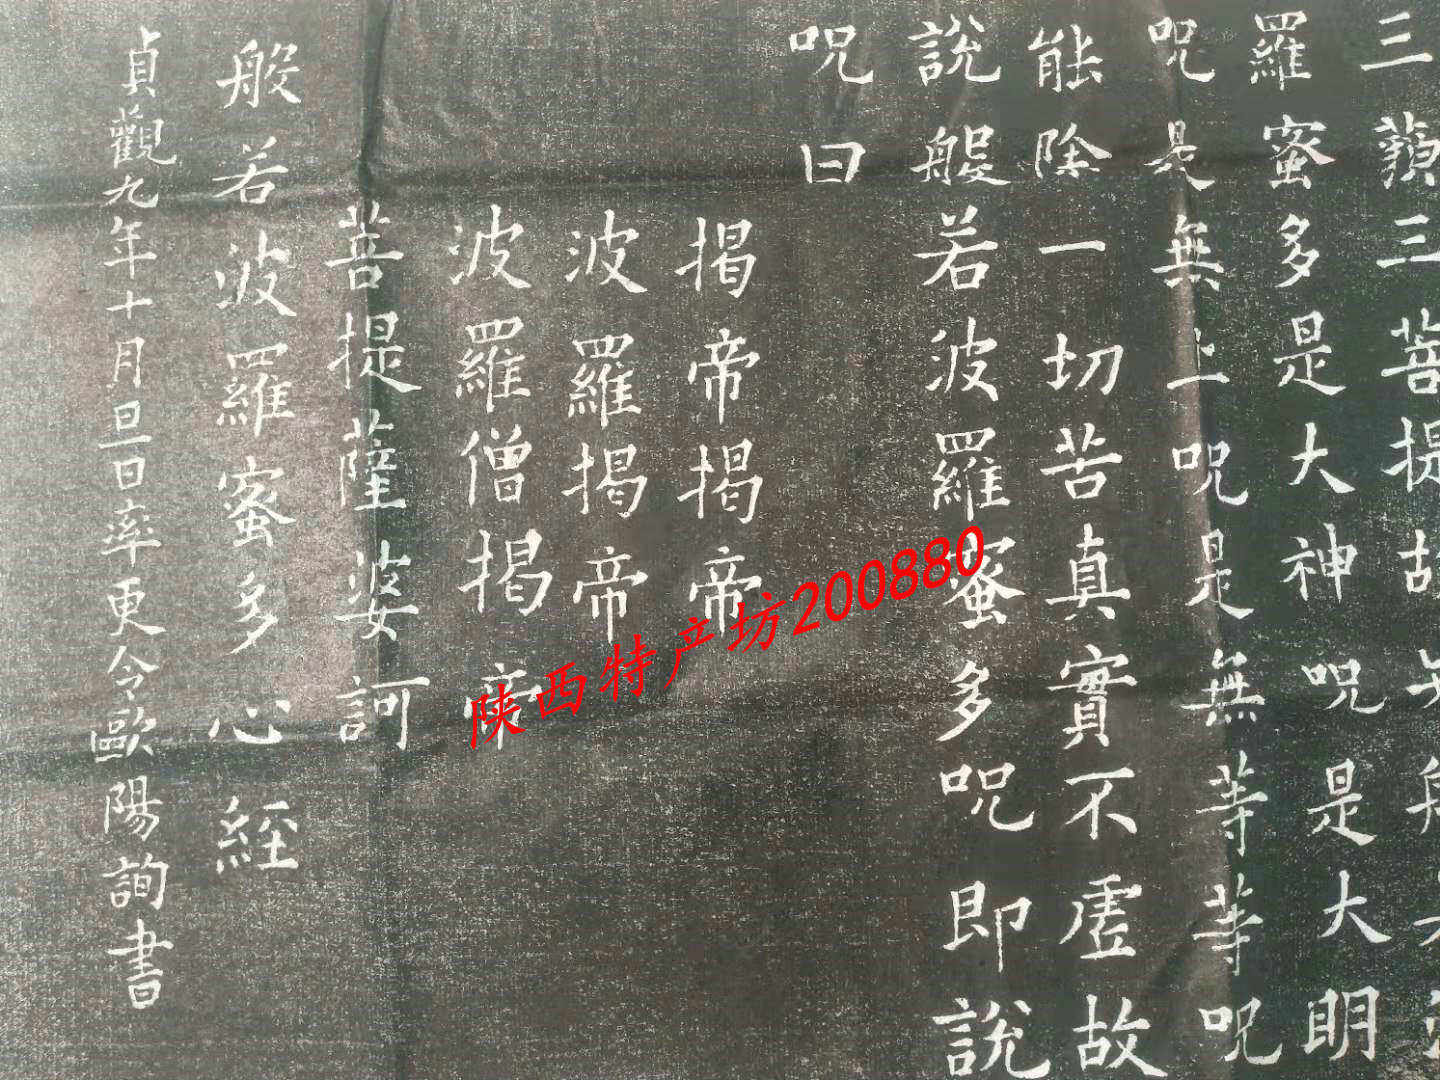 三藐三菩提故
羅蜜多是大神呪是大明
呪是無上呪是無等等呪
能除一切苦真實不虛故
說般若波羅蜜多呪即說
呪曰
揭帝揭帝
波羅揭帝
波羅僧揭帝
菩提薩婆訶
般若波羅蜜多心經
貞觀九年十月旦日率更令歐陽詢書
陕西特产坊200880